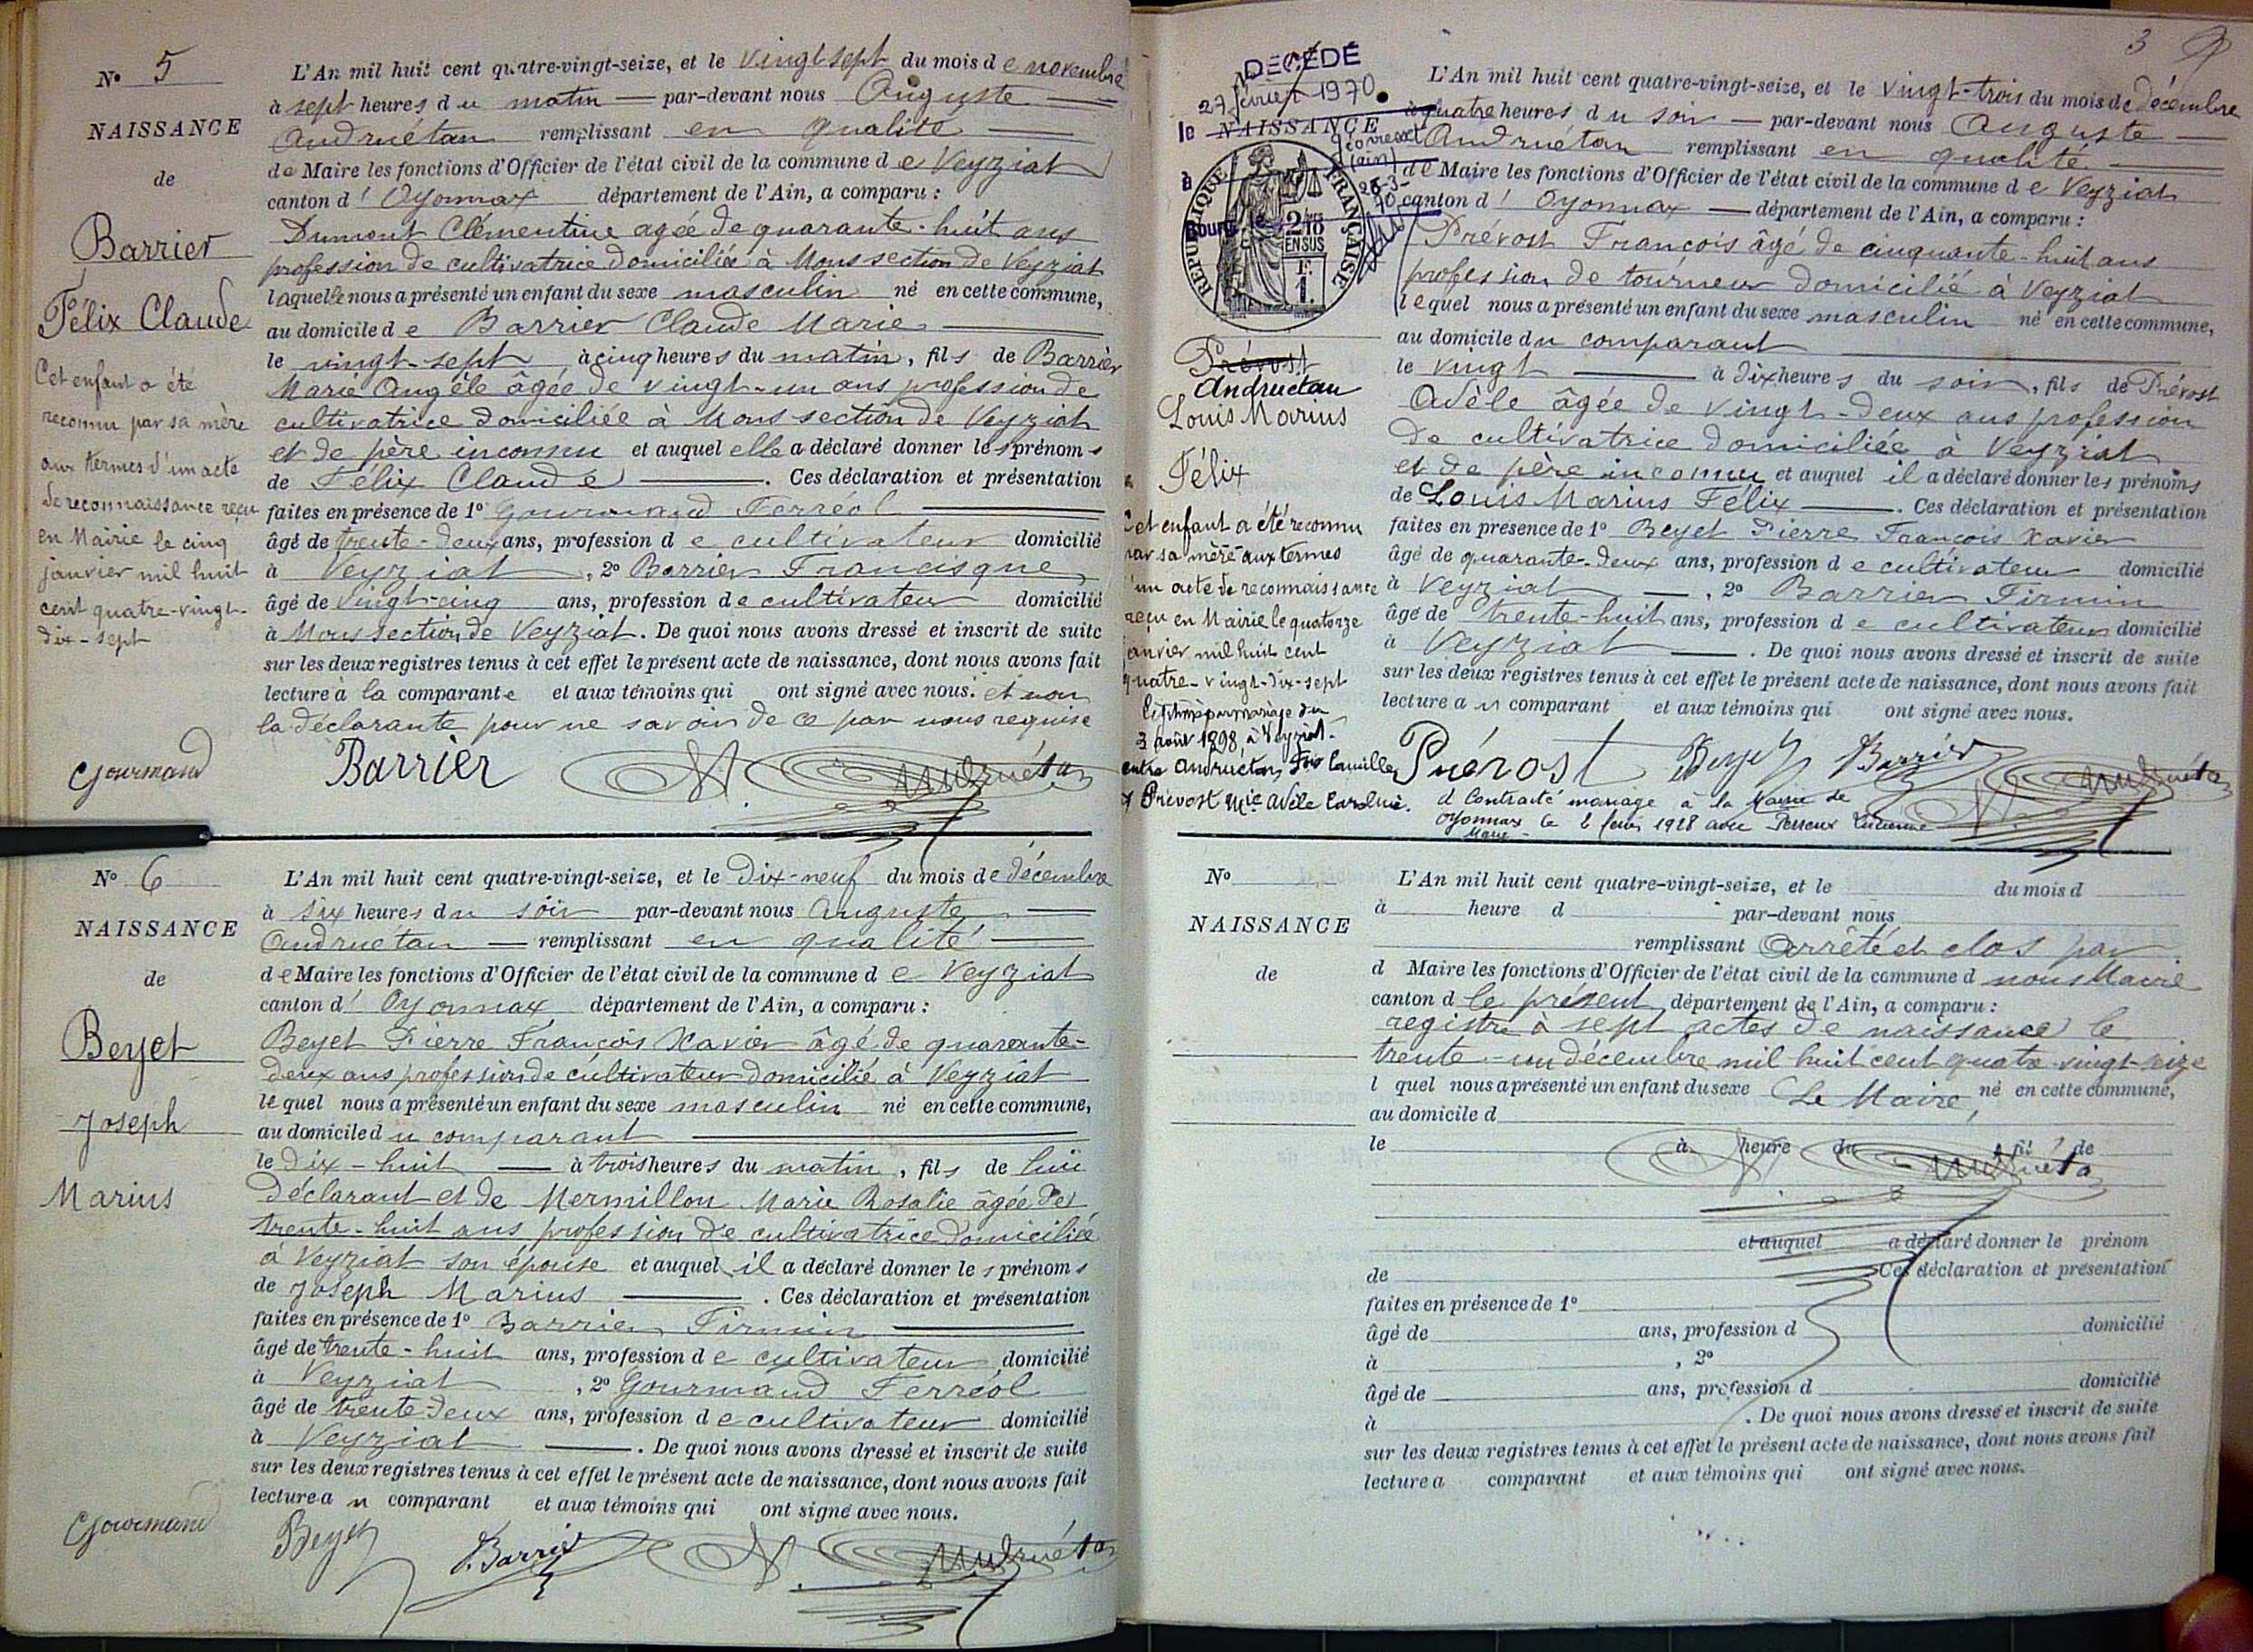 N° 5
NAISSANCE
de
Barrier
Félix Claude
Cet enfant a été
reconnu par sa mère
aux termes d'un acte
de reconnaissance reçu
en Mairie le cinq
janvier mil huit
cent quatre-vingt-
dix-sept
L'An mil huit cent quatre-vingt-seize, et le vingt sept du mois de novembre
à sept heures du matin — par-devant nous Auguste —
Andruétan remplissant en qualité —
de Maire les fonctions d'Officier de l'état civil de la commune de Veyziat
canton d'Oyonnax département de l'Ain, a comparu :
Dumont Clémentine agée de quarante-huit ans
profession de cultivatrice domiciliée à Mons section de Veyziat
laquelle nous a présenté un enfant du sexe masculin né en cette commune,
au domicile de Barrier Claude Marie —
le vingt-sept à cinq heures du matin, fils de Barrier
Marie Angèle âgée de vingt-un ans profession de
cultivatrice domiciliée à Mons section de Veyziat
et de père inconnu et auquel elle a déclaré donner les prénoms
de Félix Claude — . Ces déclaration et présentation
faites en présence de 1° Gourmand Ferréol —
âgé de trente-deux ans, profession de cultivateur domicilié
à Veyziat , 2° Barrier Francisque
âgé de vingt-cinq ans, profession de cultivateur domicilié
à Mons section de Veyziat. De quoi nous avons dressé et inscrit de suite
sur les deux registres tenus à cet effet le présent acte de naissance, dont nous avons fait
lecture à la comparante et aux témoins qui ont signé avec nous. et non
la déclarante pour ne savoir de ce par nous requise
Gourmand Barrier A. Andruétan
N° 6
NAISSANCE
de
Beyet
Joseph
Marius
L'An mil huit cent quatre-vingt-seize, et le dix-neuf du mois de décembre
à six heures du soir par-devant nous Auguste —
Andruétan — remplissant en qualité —
de Maire les fonctions d'Officier de l'état civil de la commune de Veyziat
canton d'Oyonnax département de l'Ain, a comparu :
Beyet Pierre François Xavier âgé de quarante-
deux ans profession de cultivateur domicilié à Veyziat
lequel nous a présenté un enfant du sexe masculin né en cette commune,
au domicile du comparant —
le dix-huit — à trois heures du matin, fils de lui
déclarant et de Mermillon Marie Rosalie âgée de
trente-huit ans profession de cultivatrice domiciliée
à Veyziat son épouse et auquel il a déclaré donner les prénoms
de Joseph Marius — . Ces déclaration et présentation
faites en présence de 1° Barrier Firmin —
âgé de trente-huit ans, profession de cultivateur domicilié
à Veyziat , 2° Gourmand Ferréol
âgé de trente-deux ans, profession de cultivateur domicilié
à Veyziat — . De quoi nous avons dressé et inscrit de suite
sur les deux registres tenus à cet effet le présent acte de naissance, dont nous avons fait
lecture au comparant et aux témoins qui ont signé avec nous.
Gourmand Beyet F. Barrier A. Andruétan
3
DÉCÉDÉ
27 février 1970
le NAISSANCE
Géovreisset
(ain)
à
26-3-
70
Bourg
RÉPUBLIQUE FRANÇAISE
2/10 EN SUS
1 F.
Prévost
Andruetan
Louis Marius
Félix
Cet enfant a été reconnu
par sa mère aux termes
d'un acte de reconnaissance
reçu en Mairie le quatorze
janvier mil huit cent
quatre-vingt-dix-sept
Légitimé par mariage du
3 août 1898, à Veyziat
entre Andruetan Camille
& Prévost Mie Adèle Caroline.
L'An mil huit cent quatre-vingt-seize, et le vingt-trois du mois de décembre
à quatre heures du soir — par-devant nous Auguste —
Andruétan remplissant en qualité —
de Maire les fonctions d'Officier de l'état civil de la commune de Veyziat
canton d'Oyonnax — département de l'Ain, a comparu :
Prévost François âgé de cinquante-huit ans
profession de tourneur domicilié à Veyziat
lequel nous a présenté un enfant du sexe masculin né en cette commune,
au domicile du comparant —
le vingt — à dix heures du soir, fils de Prévost
Adèle âgée de vingt-deux ans profession
de cultivatrice domiciliée à Veyziat
et de père inconnu et auquel il a déclaré donner les prénoms
de Louis Marius Félix — . Ces déclaration et présentation
faites en présence de 1° Beyet Pierre François Xavier
âgé de quarante-deux ans, profession de cultivateur domicilié
à Veyziat — , 2° Barrier Firmin
âgé de trente-huit ans, profession de cultivateur domicilié
à Veyziat — . De quoi nous avons dressé et inscrit de suite
sur les deux registres tenus à cet effet le présent acte de naissance, dont nous avons fait
lecture au comparant et aux témoins qui ont signé avec nous.
Prévost Beyet Barrier A. Andruétan
Contracté mariage à la Mairie de
Oyonnax le 1928 avec Lucienne
Marie
N°
NAISSANCE
de
L'An mil huit cent quatre-vingt-seize, et le du mois d
à heure d par-devant nous
remplissant Arrêté et clos par
d Maire les fonctions d'Officier de l'état civil de la commune d nous Maire
canton d le présent département de l'Ain, a comparu :
registre à sept actes de naissance le
trente-un décembre mil huit cent quatre-vingt-seize
l quel nous a présenté un enfant du sexe Le Maire, né en cette commune,
au domicile d
le à heure du fil de
A. Andruétan
et auquel a déclaré donner le prénom
de Ces déclaration et présentation
faites en présence de 1°
âgé de ans, profession d domicilié
à , 2°
âgé de ans, profession d domicilié
à . De quoi nous avons dressé et inscrit de suite
sur les deux registres tenus à cet effet le présent acte de naissance, dont nous avons fait
lecture a comparant et aux témoins qui ont signé avec nous.